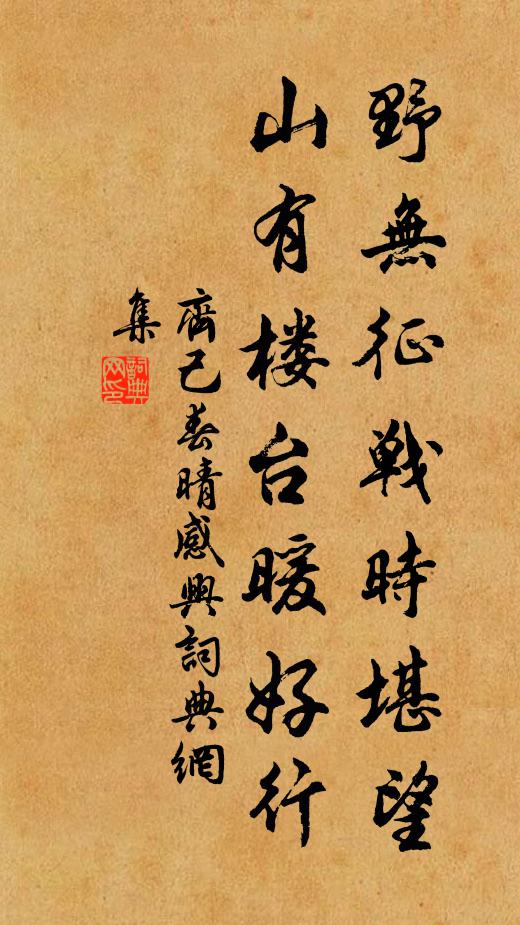 野無征戰時堪望
山有楼台暖好行
齊己春晴感興詞典網
集
詞典网印